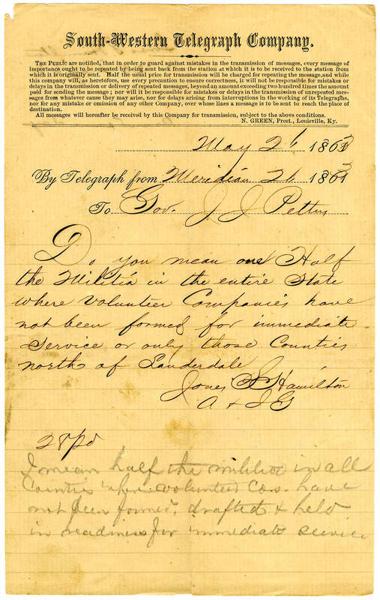 South-Western Telegraph Company.
THE PUBLIC are notified, that in order to guard against mistakes in the transmission of messages, every message of
importance ought to be repeated by being sent back from the station at which it is to be received to the station from
which it is originally sent. Half the usual price for transmission will be charged for repeating the message, and while
this company will, as heretofore, use every precaution to ensure correctness, it will not be responsible for mistakes or
delays in the transmission or delivery of repeated messages, beyond an amount exceeding two hundred times the amount
paid for sending the message; nor will it be responsible for mistakes or delays in the transmission of unrepeated mes-
sages from whatever cause they may arise, nor for delays arising from interruptions in the working of its Telegraphs,
nor for any mistake or omission of any other Company, over whose lines a message is to be sent to reach the place of
destination.
All messages will hereafter be received by this Company for transmission, subject to the above conditions.
N. GREEN, Prest., Louisville, Ky.
May 26 1863
By Telegraph from Meridian 26 1863
To Gov. J J Pettus
Do you mean one Half
the Militia in the entire State
where Volunteer Companies have
not been formed for immediate
Service or only those Counties
north of Lauderdale
Jones S Hamilton
A & I G
28 pd
I mean half the militia in all
Counties where volunteer Cos. have
not been formed, drafted & held
in readiness for immediate service